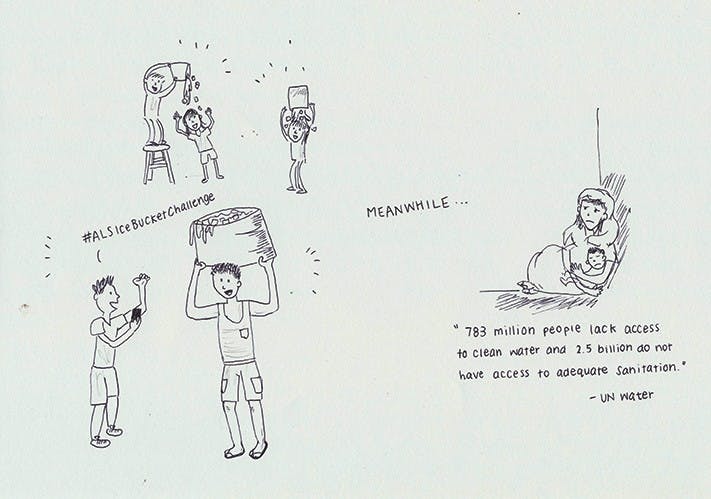 #ALSIceBucketChallenge
MEANWHILE...
"783 million people lack access
to clean water and 2.5 billion do not
have access to adequate sanitation."
- UN Water